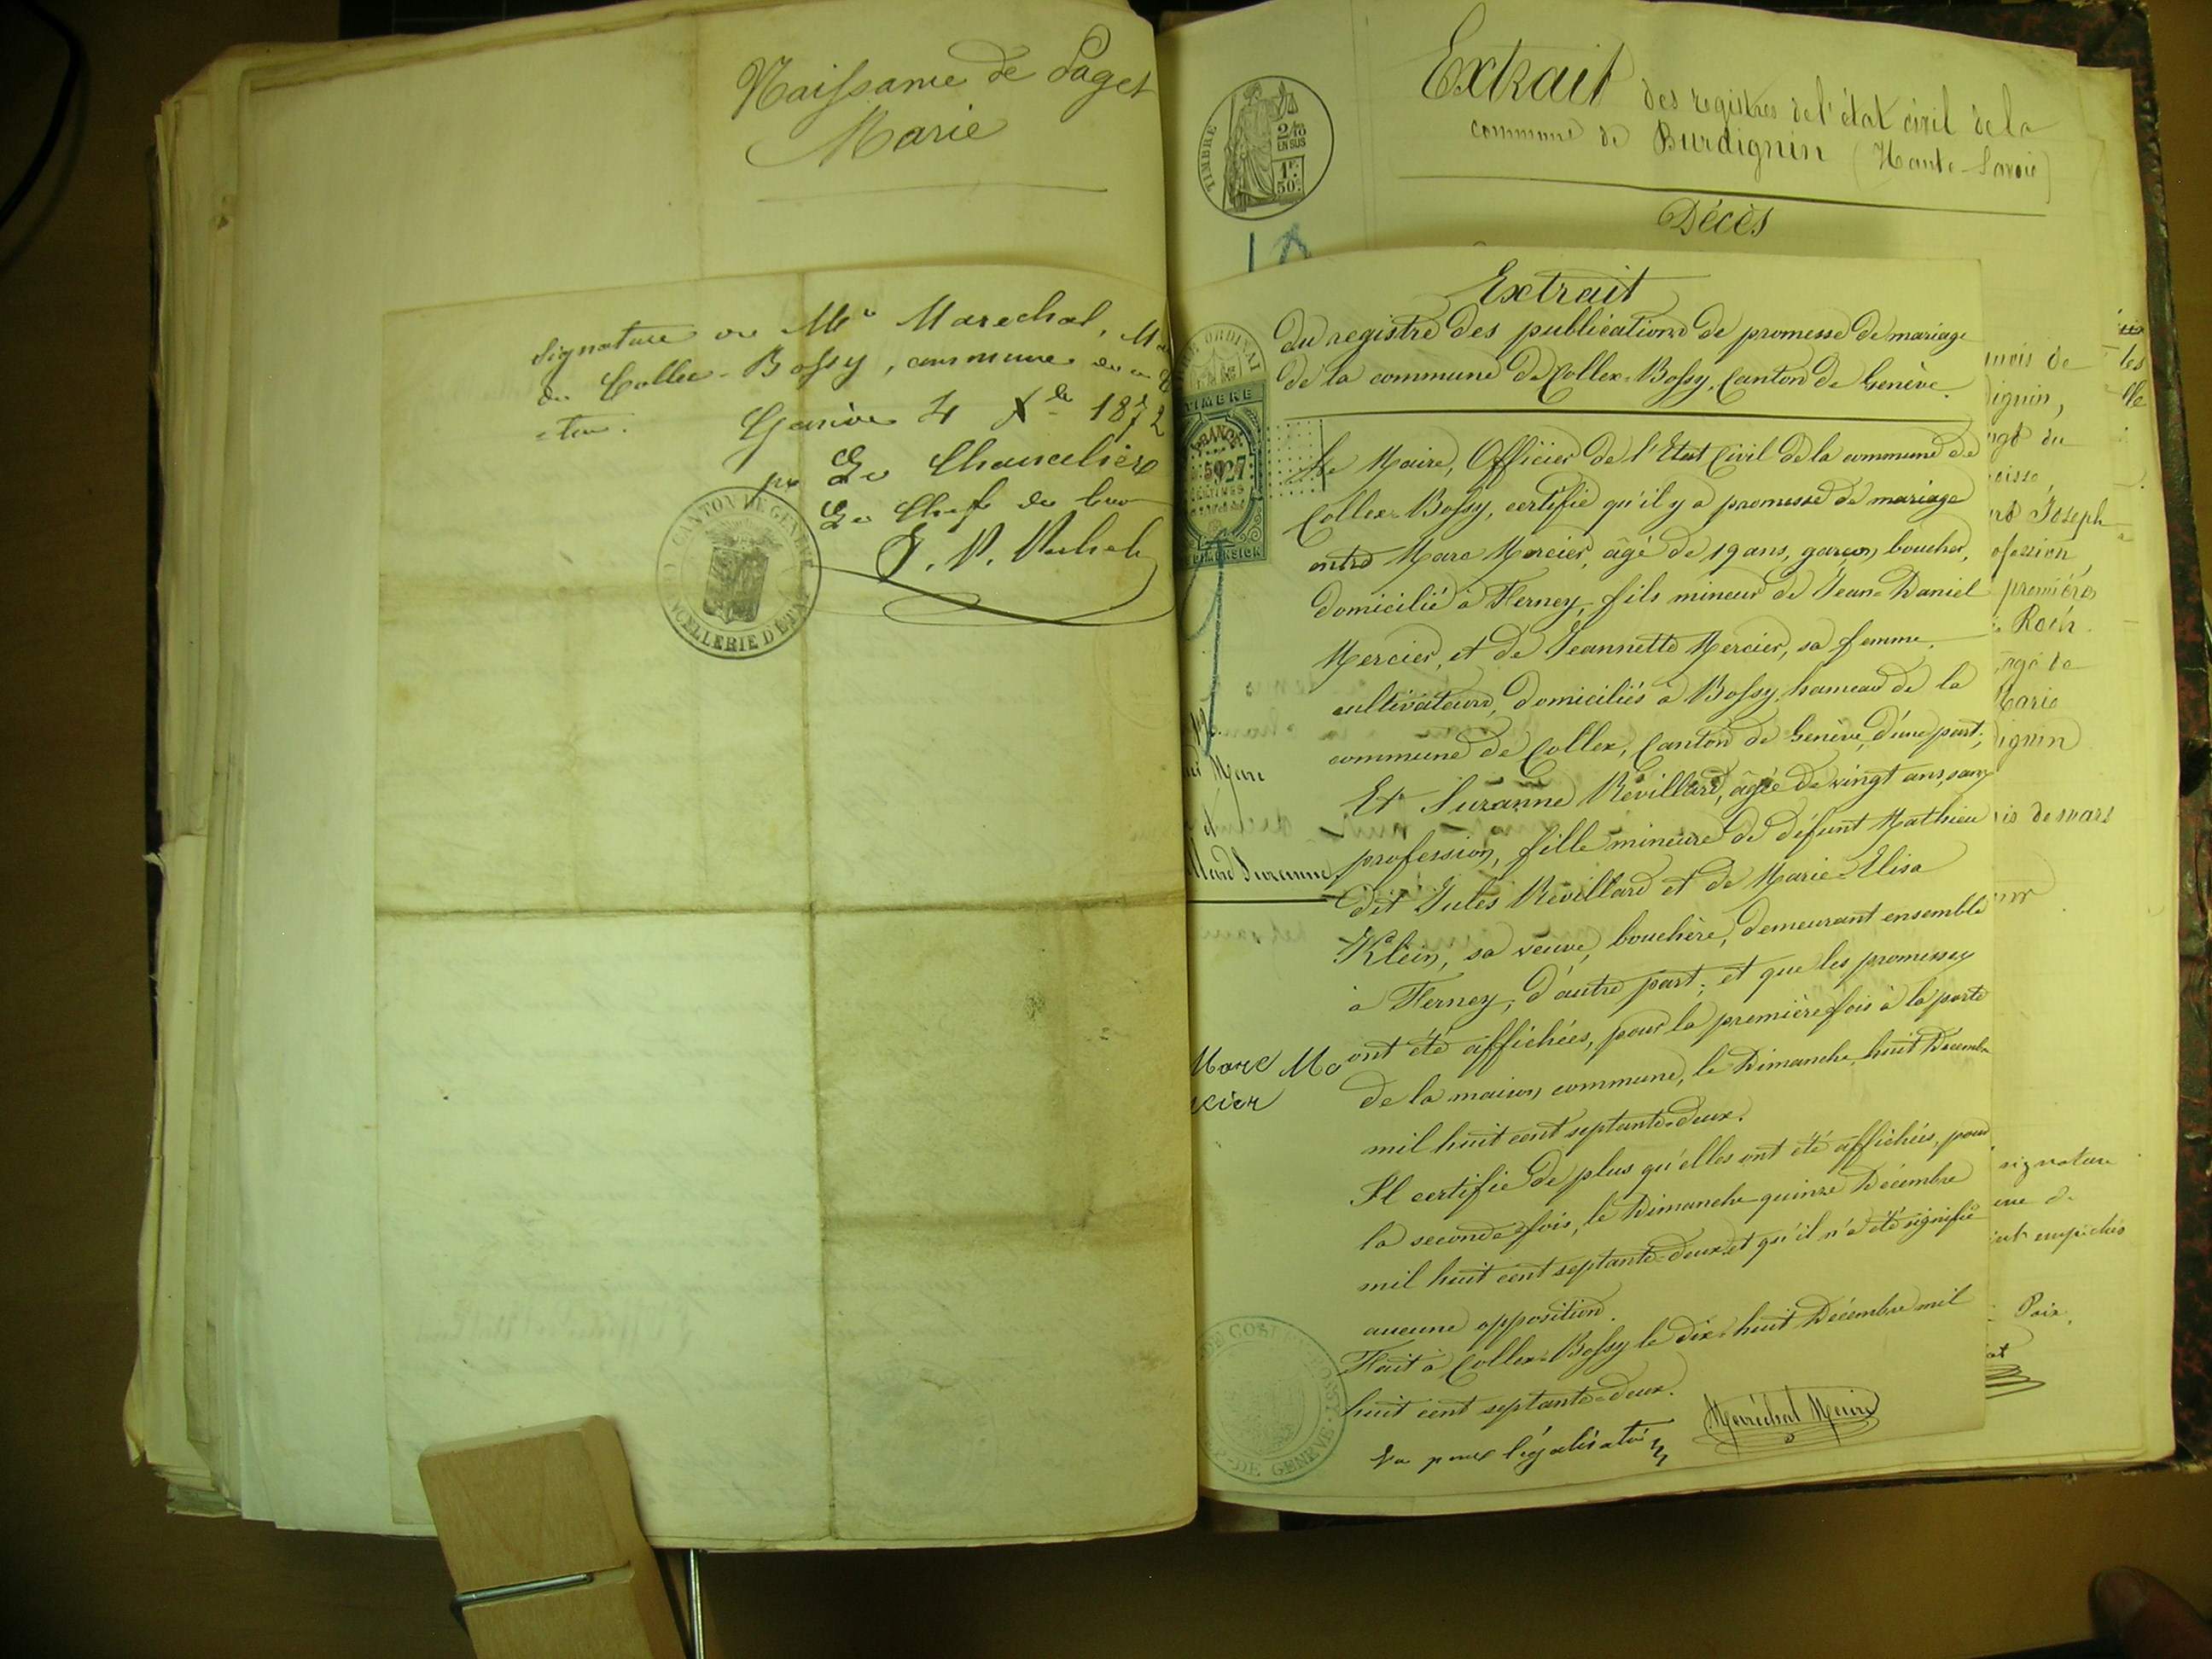 Naissance de Paget
Marie
signature de Mr Marechal, M
de Collex-Bossy, commune de ce
Genève 4 Xbre 1872
pr Le Chancelier
Le Chef de bur
CANTON DE GENÈVE
CHANCELLERIE D'ETAT
TIMBRE
2/10
EN SUS
1F.
50C.
Extrait des registres de l'état civil de la
commune de Burdignin (Haute-Savoie)
Décès
Extrait
du registre des publications de promesse de mariage
de la commune de Collex-Bossy, Canton de Genève.
TIMBRE
FRANCE
DIMENSION
Le Maire, Officier de l'Etat Civil de la commune de
Collex-Bossy, certifie qu'il y a promesse de mariage
entre Marc Mercier, âgé de 19 ans, garçon boucher,
domicilié à Ferney, fils mineur de Jean-Daniel
Mercier, et de Jeannette Mercier, sa femme,
cultivateurs, domiciliés à Bossy, hameau de la
commune de Collex, Canton de Genève, d'une part;
Et Suzanne Révillard, âgée de vingt ans, sans
profession, fille mineure de défunt Mathieu
dit Jules Révillard et de Marie-Elisa
Klein, sa veuve, bouchère, demeurant ensemble
à Ferney, d'autre part; et que les promesses
ont été affichées, pour la première fois à la porte
de la maison commune, le Dimanche, huit Décembre
mil huit cent septante-deux.
Il certifie de plus qu'elles ont été affichées, pour
la seconde fois, le Dimanche quinze Décembre
mil huit cent septante-deux et qu'il n'a été signifié
aucune opposition.
Fait à Collex-Bossy le dix-huit Décembre mil
huit cent septante-deux.
Maréchal Maire
Vu pour légalisation
Marc
et
llard Suzanne
Marc Me
rcier
DE GENÈVE
mois de
dignin,
Joseph
ofession
premières
Roch
âgé de
Marie
dignin
is de mars
signature
empêchés
Paix,